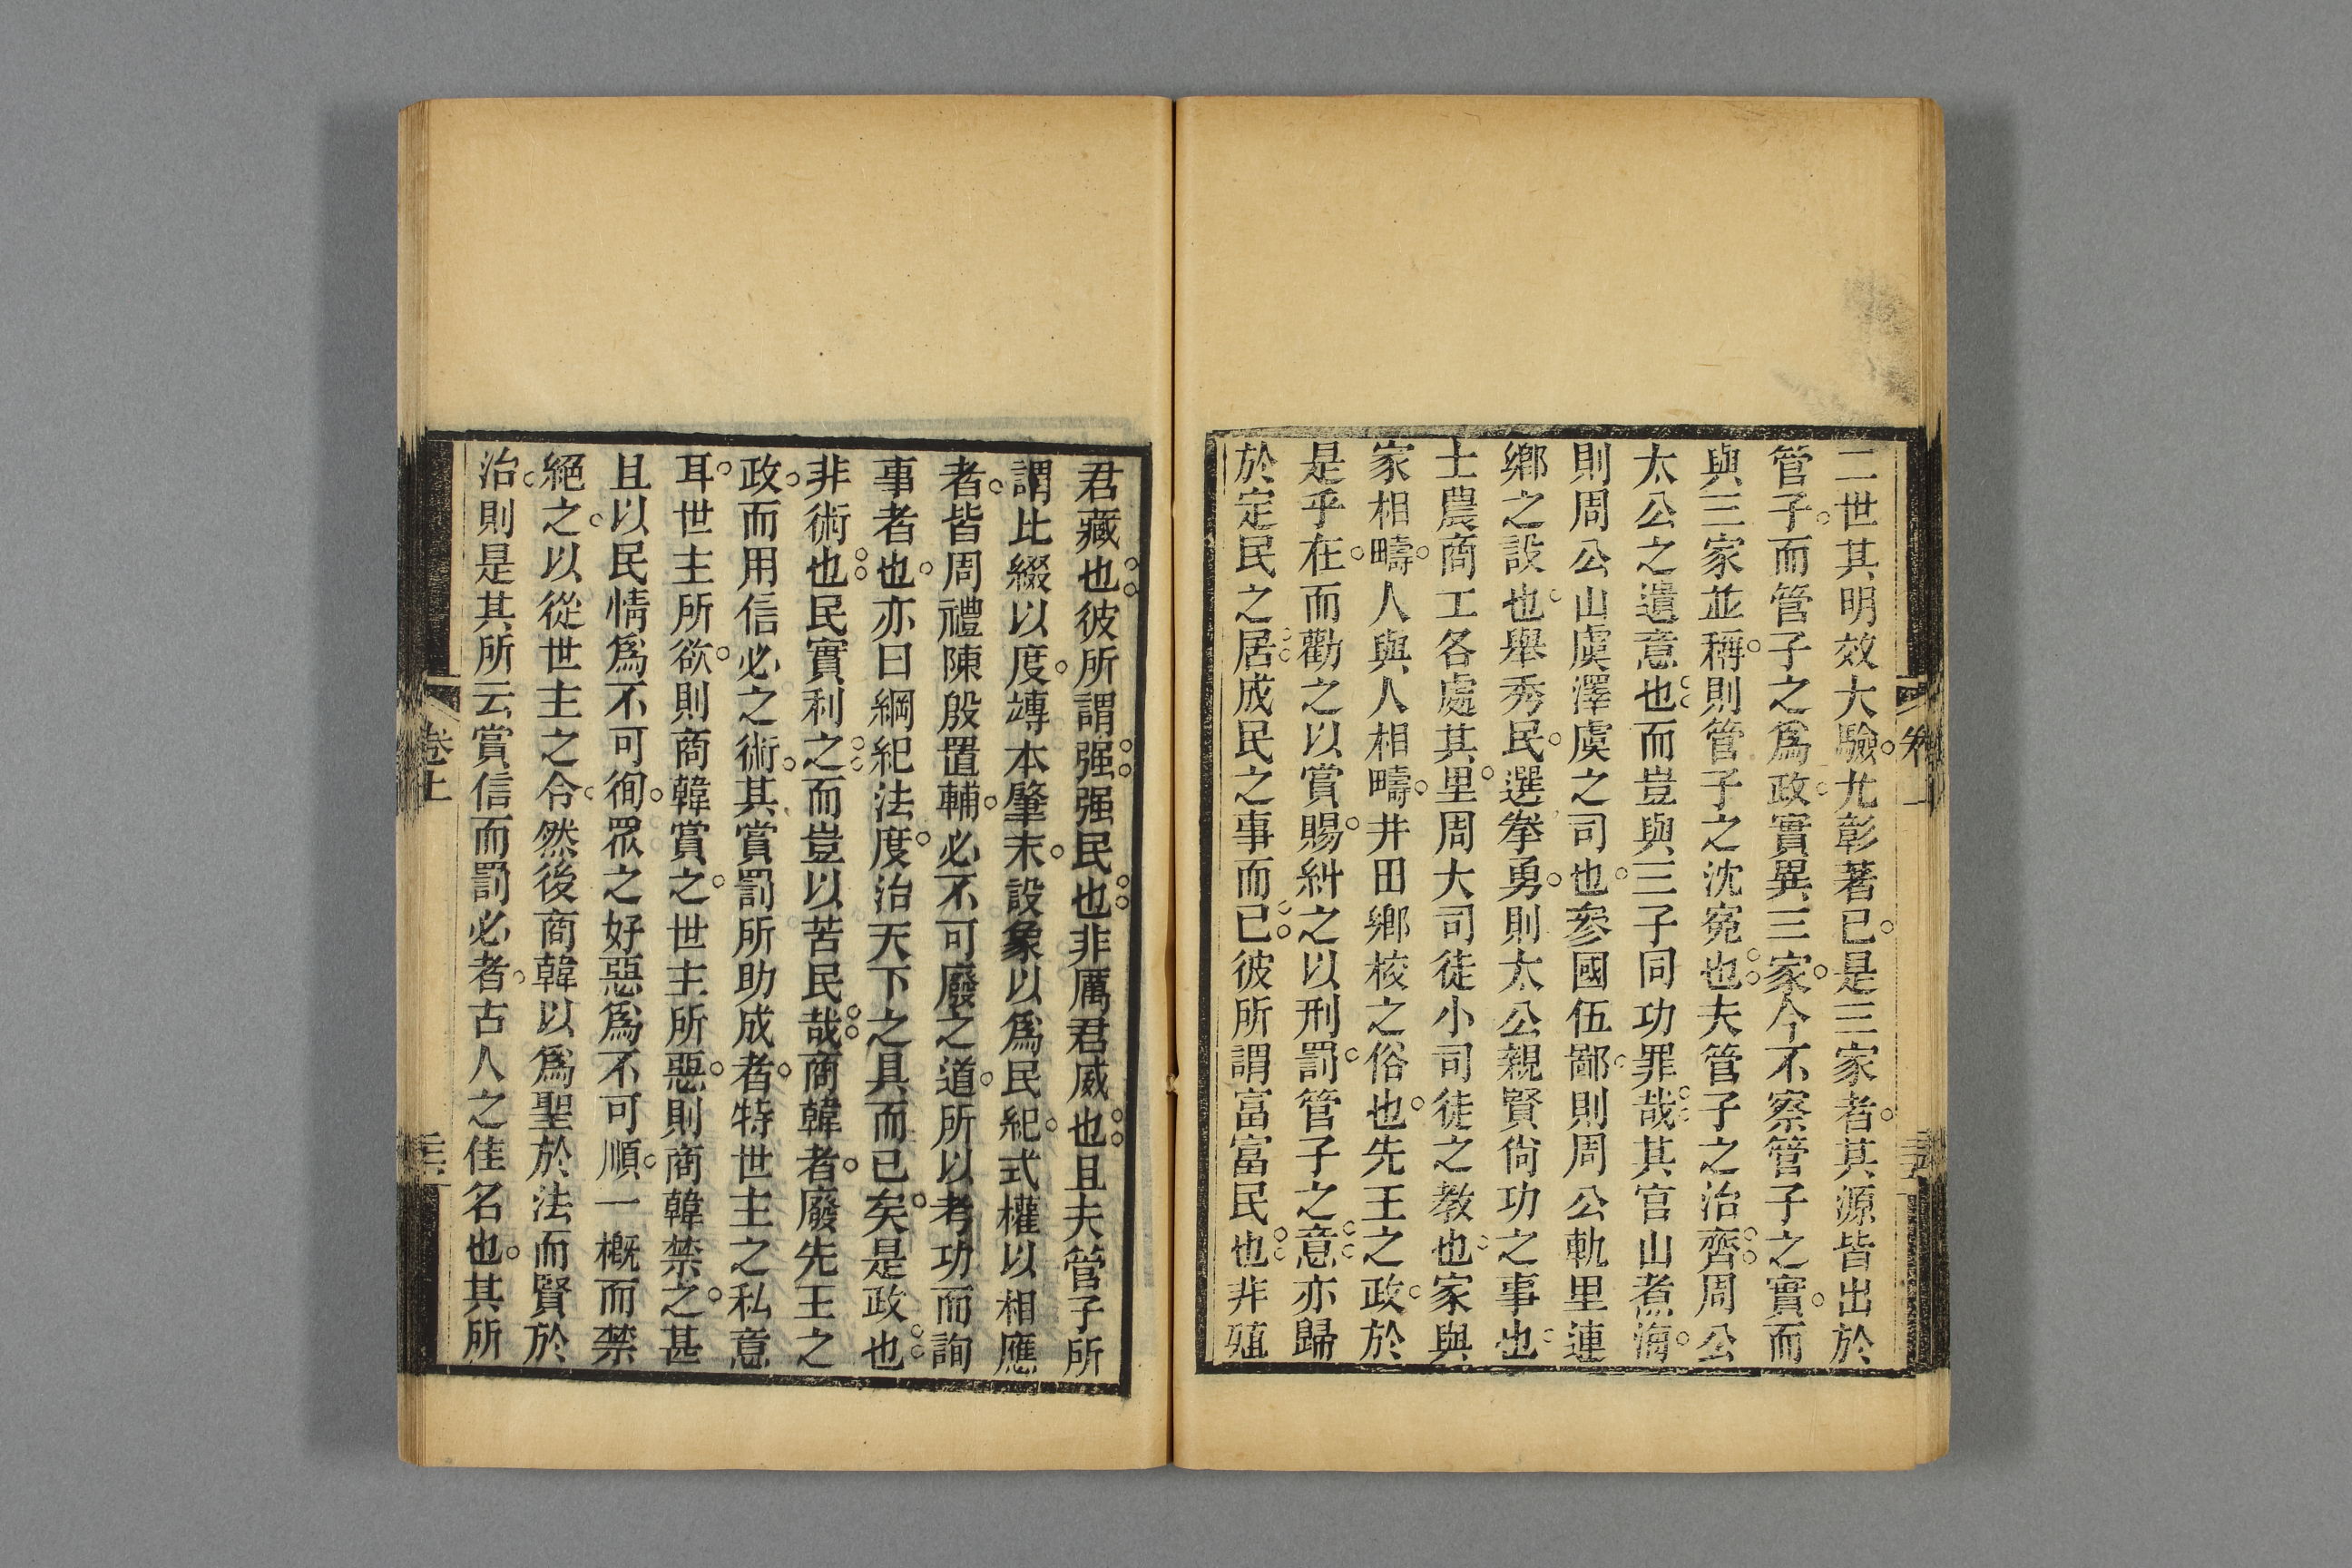 二世其明效大驗尤彰著已是三家者其源皆出於
管子而管子之爲政實異三家今不察管子之實而
與三家並稱則管子之沈寃也夫管子之治齊周公
太公之遺意也而豈與三子同功罪哉其官山煮海
則周公山虞澤虞之司也參國伍鄙則周公軌里連
鄉之設也舉秀民選拳勇則太公親賢尙功之事也
士農商工各處其里周大司徒小司徒之教也家與
家相疇人與人相疇井田鄉校之俗也先王之政於
是乎在而勸之以賞賜糾之以刑罰管子之意亦歸
於定民之居成民之事而已彼所謂富富民也非殖
君藏也彼所謂强强民也非厲君威也且夫管子所
謂比綴以度竱本肇末設象以爲民紀式權以相應
者皆周禮陳殷置輔必不可廢之道所以考功而詢
事者也亦曰綱紀法度治天下之具而已矣是政也
非術也民實利之而豈以苦民哉商韓者廢先王之
政而用信必之術其賞罰所助成者特世主之私意
耳世主所欲則商韓賞之世主所惡則商韓禁之甚
且以民情爲不可徇眾之好惡爲不可順一概而禁
絕之以從世主之令然後商韓以爲聖於法而賢於
治則是其所云賞信而罰必者古人之佳名也其所
卷上